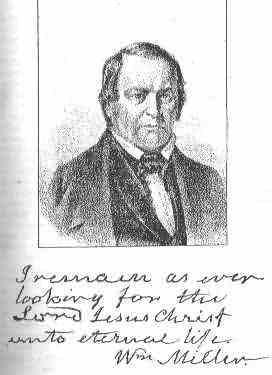 I remain as ever
looking for the
Lord Jesus Christ
unto eternal life.
Wm Miller.